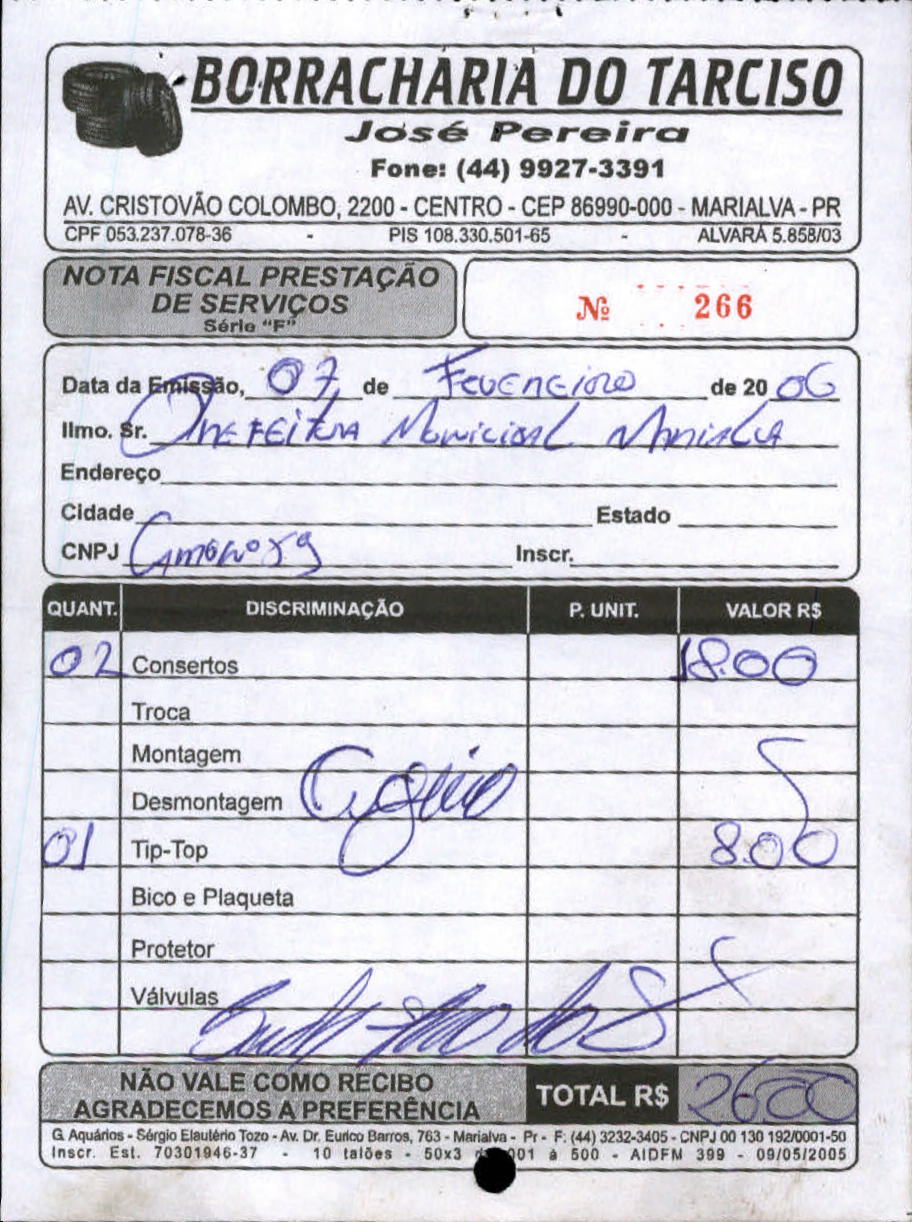 BORRACHARIA DO TARCISO
José Pereira
Fone: (44) 9927-3391
AV. CRISTOVÃO COLOMBO, 2200 - CENTRO - CEP 86990-000 - MARIALVA - PR
CPF 053.237.078-36 - PIS 108.330.501-65 - ALVARÁ 5.858/03
NOTA FISCAL PRESTAÇÃO
DE SERVIÇOS
Série "F"
Nº 266
Data da Emissão, 07, de Fevereiro de 20 06
Ilmo. Sr. Prefeitura Municipal Marialva
Endereço
Cidade Estado
CNPJ Inscr.
QUANT. DISCRIMINAÇÃO P. UNIT. VALOR R$
02 Consertos 18.00
Troca
Montagem
Desmontagem
01 Tip-Top 8.00
Bico e Plaqueta
Protetor
Válvulas
NÃO VALE COMO RECIBO
AGRADECEMOS A PREFERÊNCIA
TOTAL R$ 2600
G. Aquários - Sérgio Elautério Tozo - Av. Dr. Eurico Barros, 763 - Marialva - Pr - F: (44) 3232-3405 - CNPJ 00 130 192/0001-50
Inscr. Est. 70301946-37 - 10 talões - 50x3 001 à 500 - AIDFM 399 - 09/05/2005